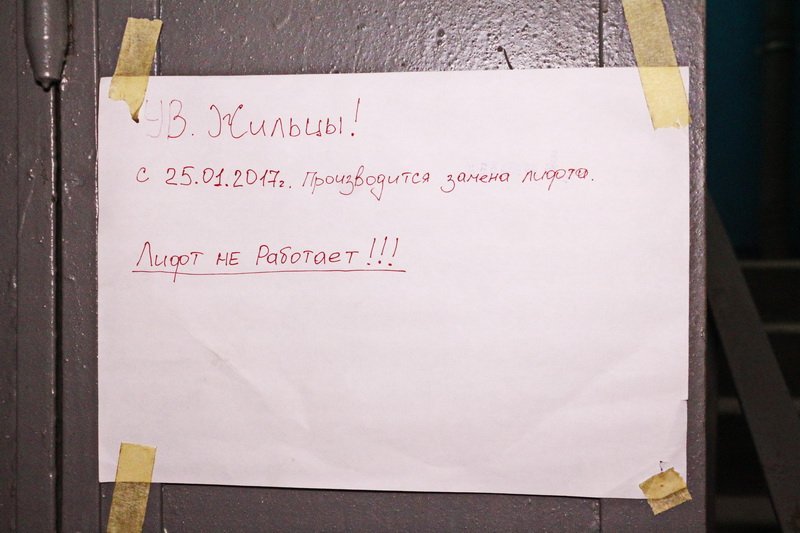 УВ. Жильцы!
с 25.01.2017г. Производится замена лифта.
Лифт не Работает!!!